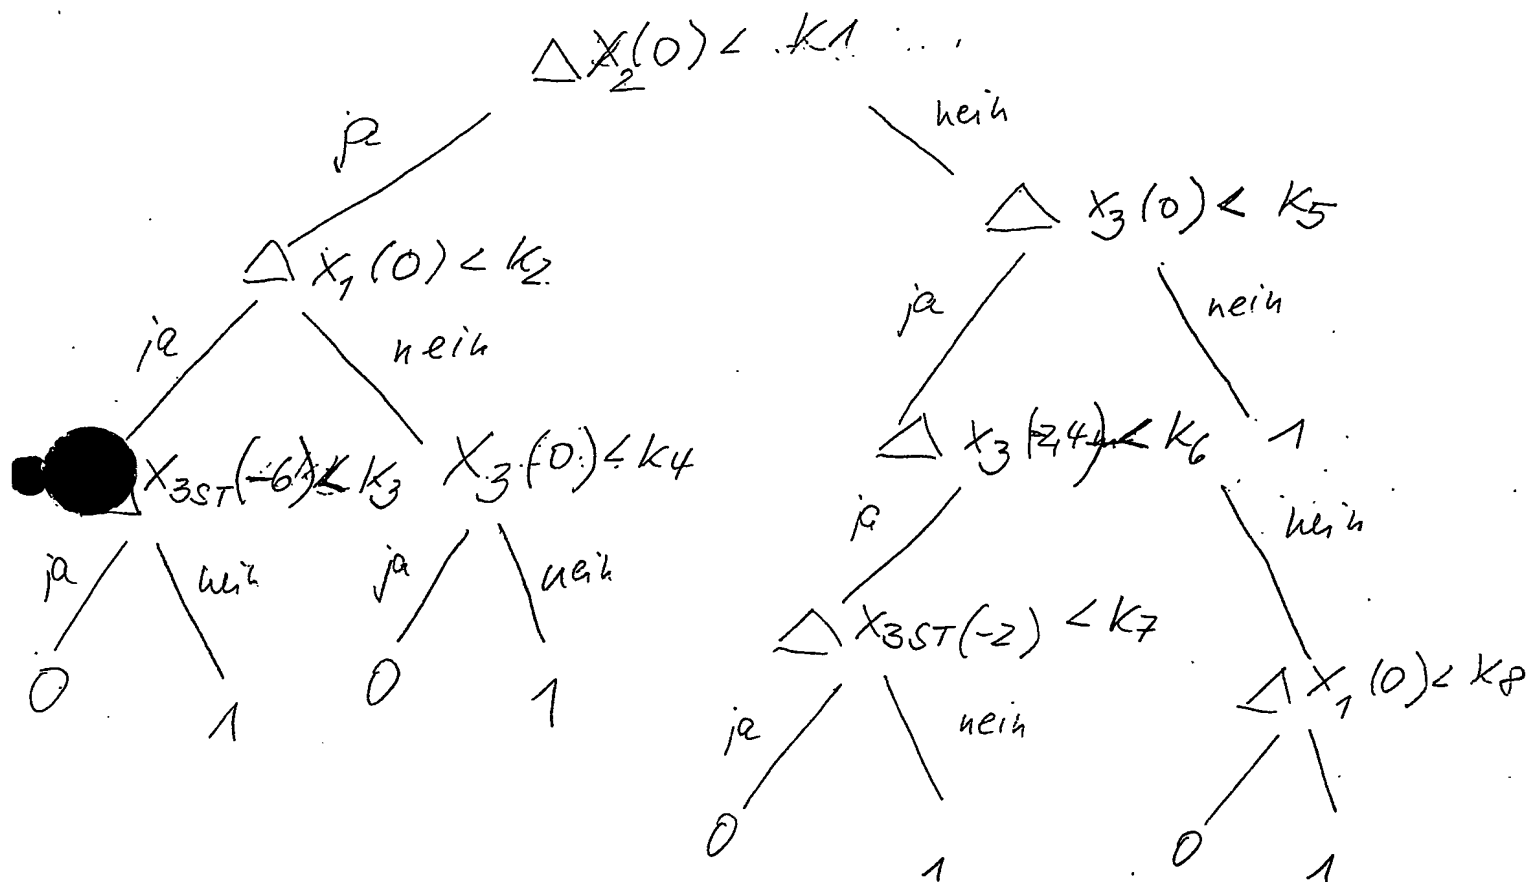 △X₂(0) < K1
ja nein
△ X₃(0) < K₅
△ X₁(0) < K₂
ja nein
ja nein
△ X₃ST(-6) < K₃ X₃(0) < K₄ △ X₃(-2,4) < K₆ 1
ja nein ja nein ja nein
△ X₃ST(-2) < K₇
0 1 0 1 △ X₁(0) < K₈
ja nein
0 1 0 1